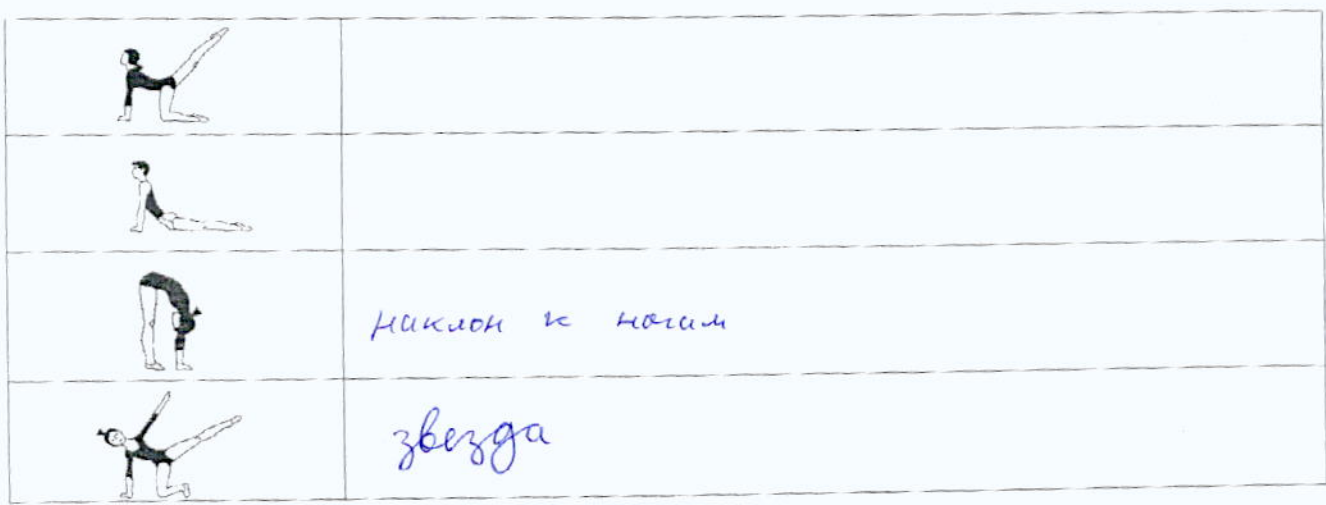 наклон к ногам
звезда